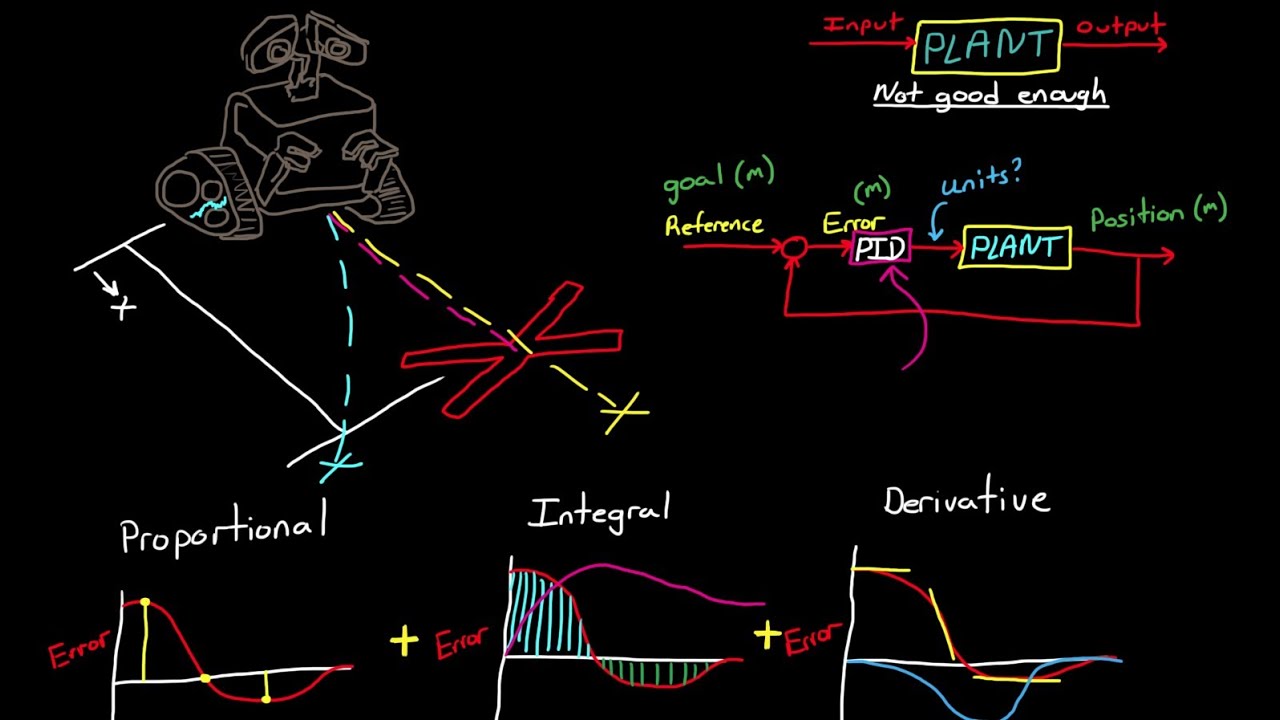 Input
PLANT
output
Not good enough
goal (m)
(m)
units?
Reference
Error
PID
PLANT
Position (m)
Proportional
Integral
Derivative
Error
+
Error
+
Error